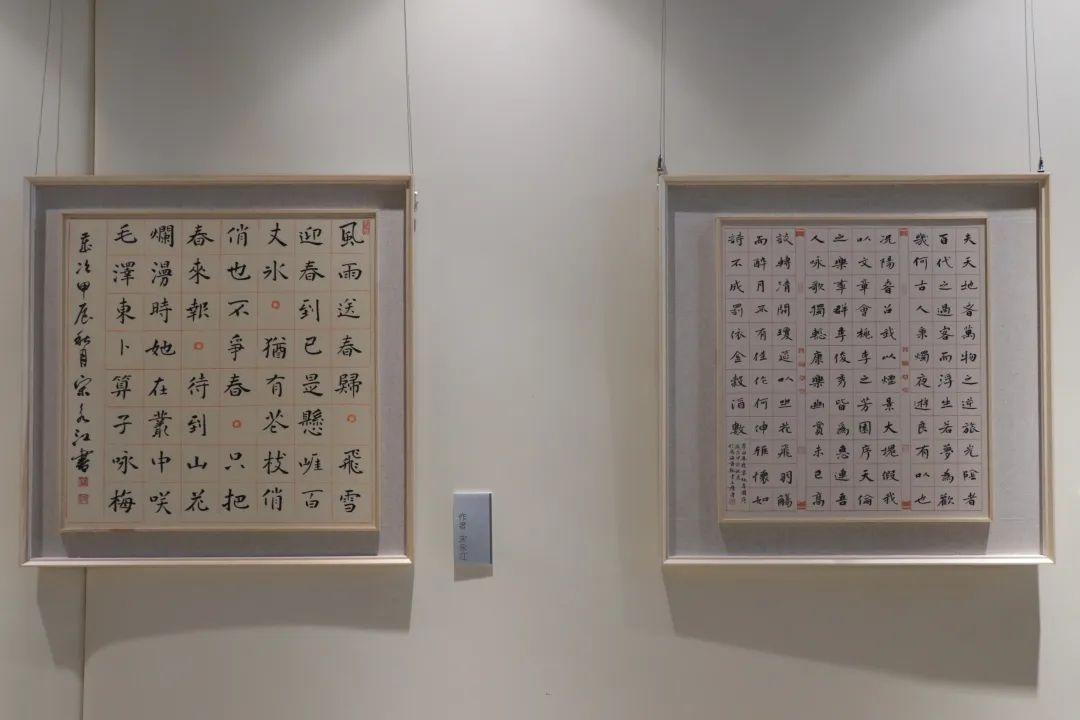 風雨送春歸飛雪
迎春到已是懸崕百
丈冰猶有花枝俏
俏也不爭春只把
春來報待到山花
爛漫時她在叢中咲
毛澤東卜算子咏梅
歲次甲辰秋月宋永江書
作者 宋永江
夫天地者萬物之逆旅光陰者
百代之過客而浮生若夢為歡
幾何古人秉燭夜遊良有以也
况陽春召我以煙景大塊假我
以文章會桃李之芳園序天倫
之樂事群季俊秀皆為惠連吾
人咏歌獨慙康樂幽賞未已高
談轉清開瓊筵以坐花飛羽觴
而醉月不有佳作何伸雅懷如
詩不成罰依金穀酒數